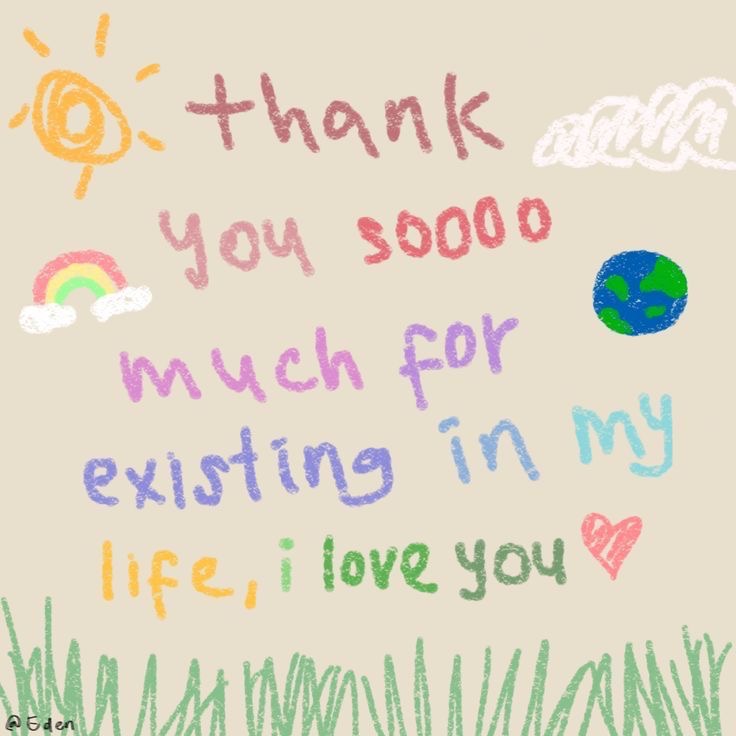 thank
you soooo
much for
existing in my
life, i love you
@Eden